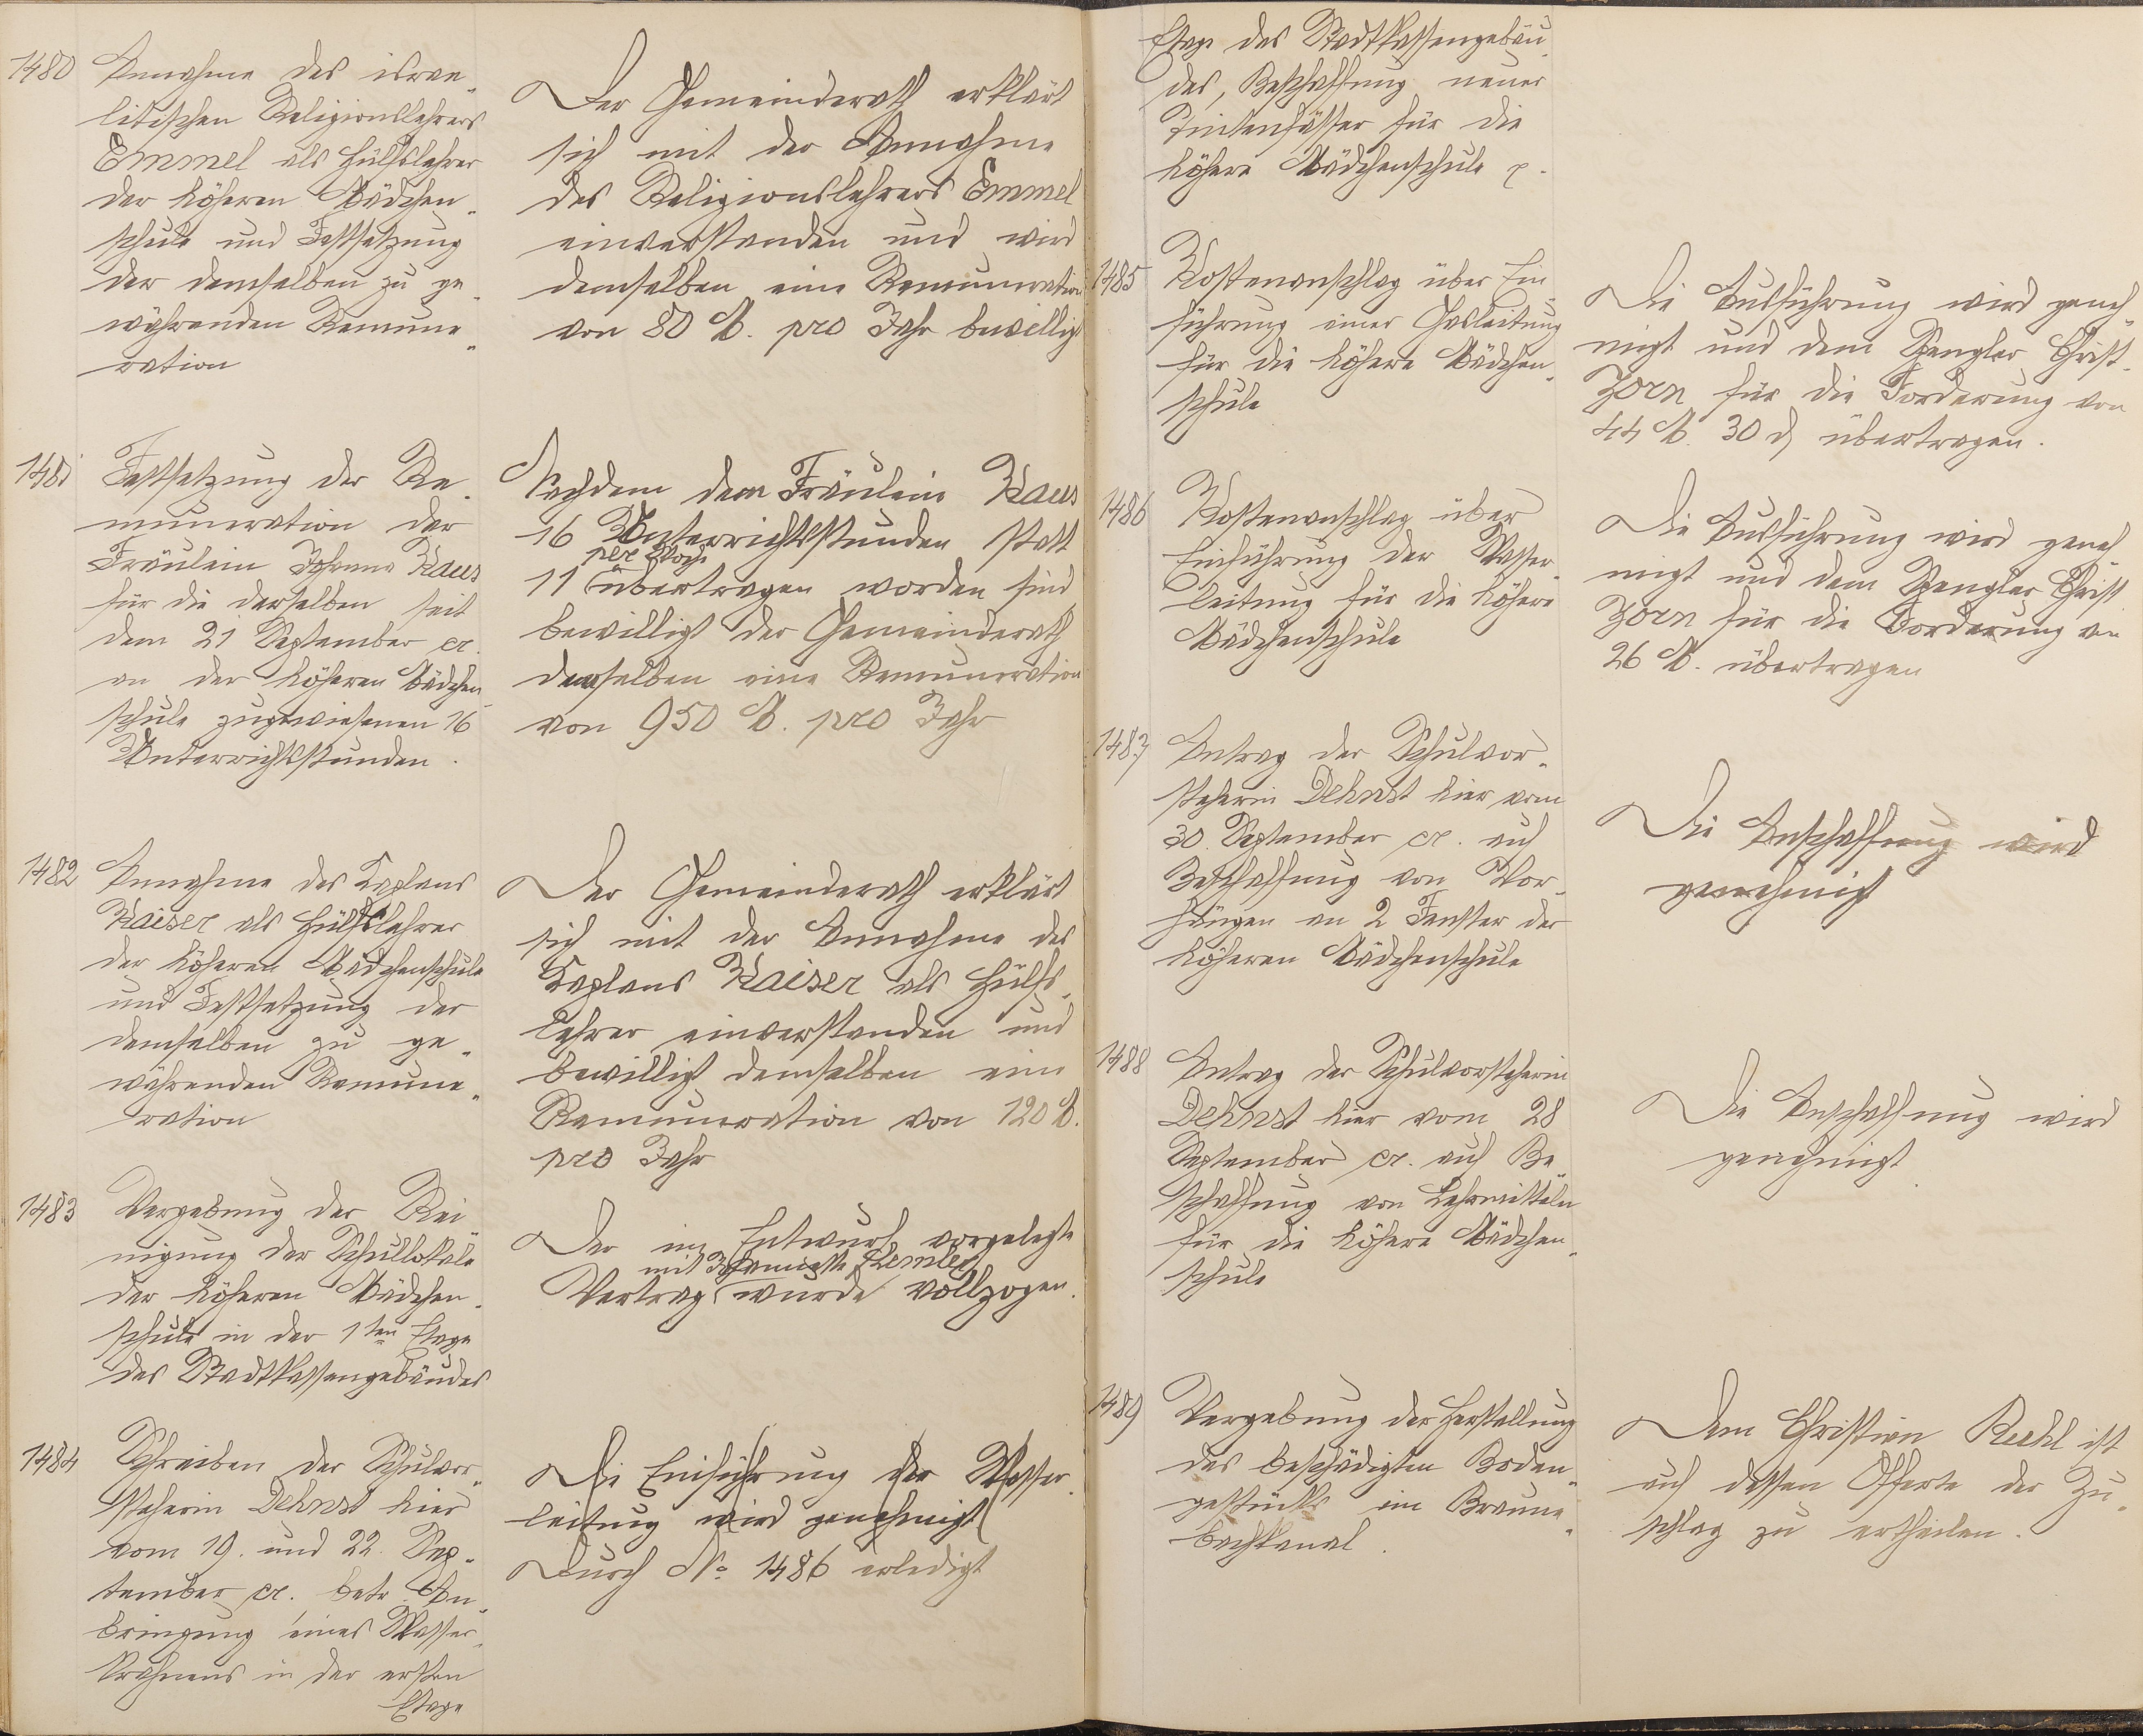 1480
Annahme des israe-
litischen Religionslehrers
Emmel als Hülfslehrer
der höheren Mädchen-
schule und Festsetzung
der demselben zu ge-
währenden Remune-
ration
Der Gemeinderath erklärt
sich mit der Annahme
des Religionslehrers Emmel
einverstanden und wird
demselben eine Remuneration
von 80 M. pro Jahr bewilligt
1481
Festsetzung der Re-
muneration der
Fräulein Johanna Kaus
für die derselben seit
dem 21 September cr.
an der höheren Mädchen-
schule zugewiesenen 16
Unterrichtsstunden.
Nachdem dem Fräulein Kaus
16 Unterrichtsstunden statt
per Woche
11 übertragen worden sind
bewilligt der Gemeinderath
derselben eine Remuneration
von 950 M. pro Jahr
1482
Annahme des Kaplans
Kaiser als Hülfslehrer
der höheren Mädchenschule
und Festsetzung der
demselben zu ge-
währenden Remune-
ration
Der Gemeinderath erklärt
sich mit der Annahme des
Kaplans Kaiser als Hülfs-
lehrer einverstanden und
bewilligt demselben eine
Remuneration von 120 M.
pro Jahr
1483
Vergebung der Rei-
nigung der Schullokale
der höheren Mädchen-
schule in der 1ten Etage
des Stadtkassengebäudes
Der im Entwurf vorgelegte
mit
Vertrag wurde vollzogen.
1484
Schreiben der Schulvor-
steherin Dehnst hier
vom 19. und 22. Sep-
tember cr. betr. An-
bringung eines Wasser-
krahnens in der ersten
Etage
Die Einführung der Wasser-
leitung wird genehmigt
Durch No 1486 erledigt
Etage des Stadtkassengebäu-
des, Beschaffung neuer
Tintenfässer für die
höhere Mädchenschule p.
1485
Kostenanschlag über Ein-
führung einer Gasleitung
für die höhere Mädchen-
schule
Die Ausführung wird geneh-
migt und dem Spengler Christ.
Zorn für die Forderung von
44 M. 30 d übertragen.
1486
Kostenanschlag über
Einführung der Wasser-
leitung für die höhere
Mädchenschule
Die Ausführung wird geneh
migt und dem Spengler Christ
Zorn für die Forderung von
26 M. übertragen
1487
Antrag der Schulvor-
steherin Dehnst hier vom
30. September cr. auf
Beschaffung von Vor-
hängen an 2 Fenster der
höheren Mädchenschule
Die Anschaffung wird
genehmigt
1488
Antrag der Schulvorsteherin
Dehnst hier vom 28
September cr. auf Be-
schaffung von Lehrmitteln
für die höhere Mädchen-
schule
Die Anschaffung wird
genehmigt
1489
Vergebung der Herstellung
des beschädigten Boden-
gestücks im Braune-
bachkanal.
Dem Christian Reehl ist
auf dessen Offerte der Zu-
schlag zu ertheilen.